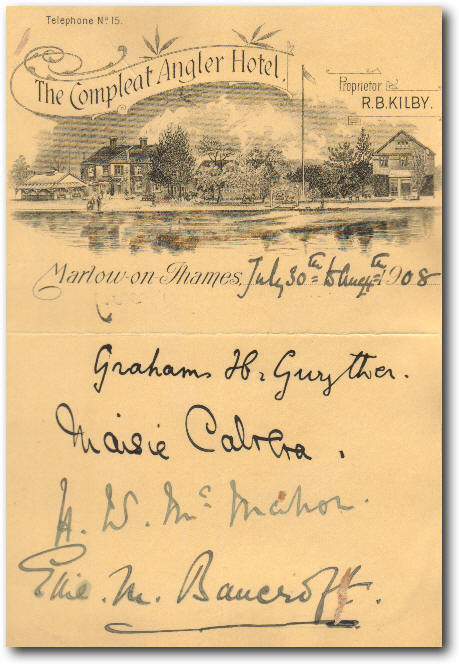 Telephone No 15.
The Compleat Angler Hotel.
Proprietor
R.B.KILBY.
Marlow-on-Thames, July 30th to Aug 4th 1908
Grahams H. Gwyther.
Maisie Cabrera.
H. W. McMahon.
Elsie. M. Bancroft.